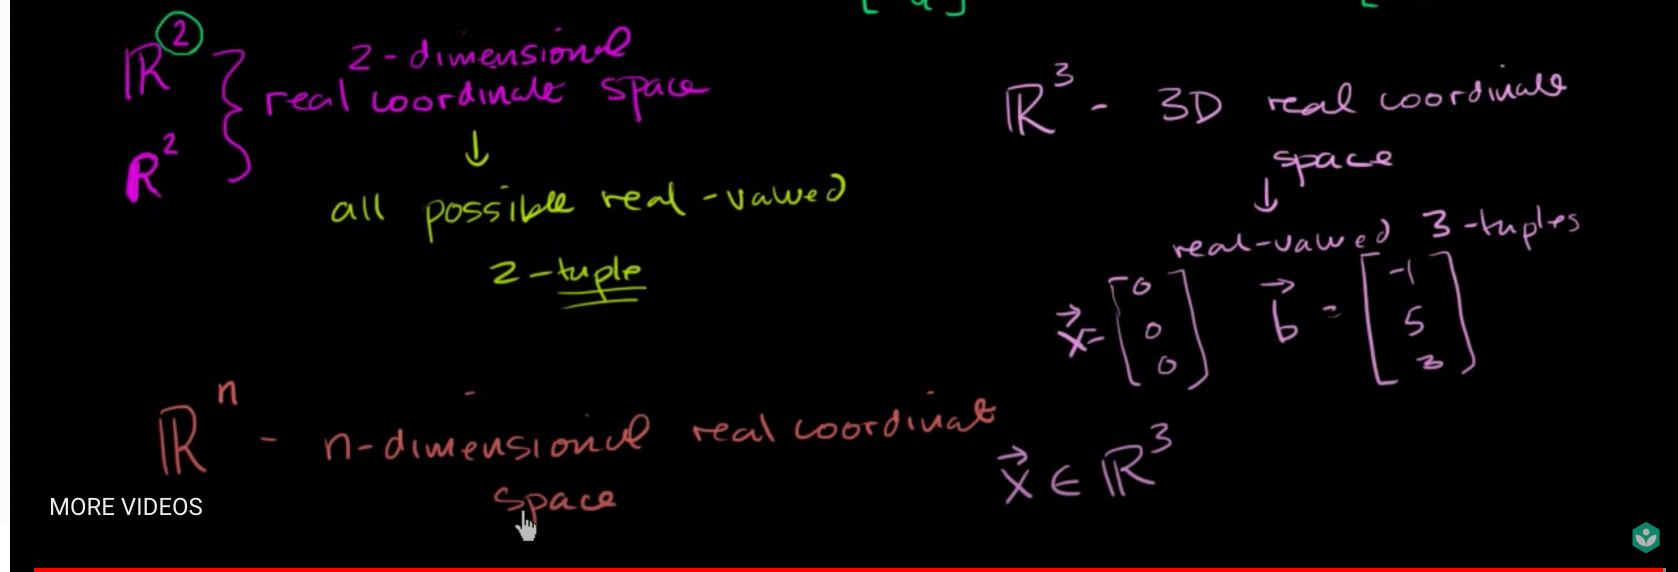 ℝ² } 2-dimensional
real coordinate space
R²
↓
all possible real-valued
2-tuple
ℝ³ - 3D real coordinate
space
↓
real-valued 3-tuples
x⃗ = [0 0 0] b⃗ = [-1 5 3]
ℝⁿ - n-dimensional real coordinat
space
x⃗ ∈ ℝ³
MORE VIDEOS